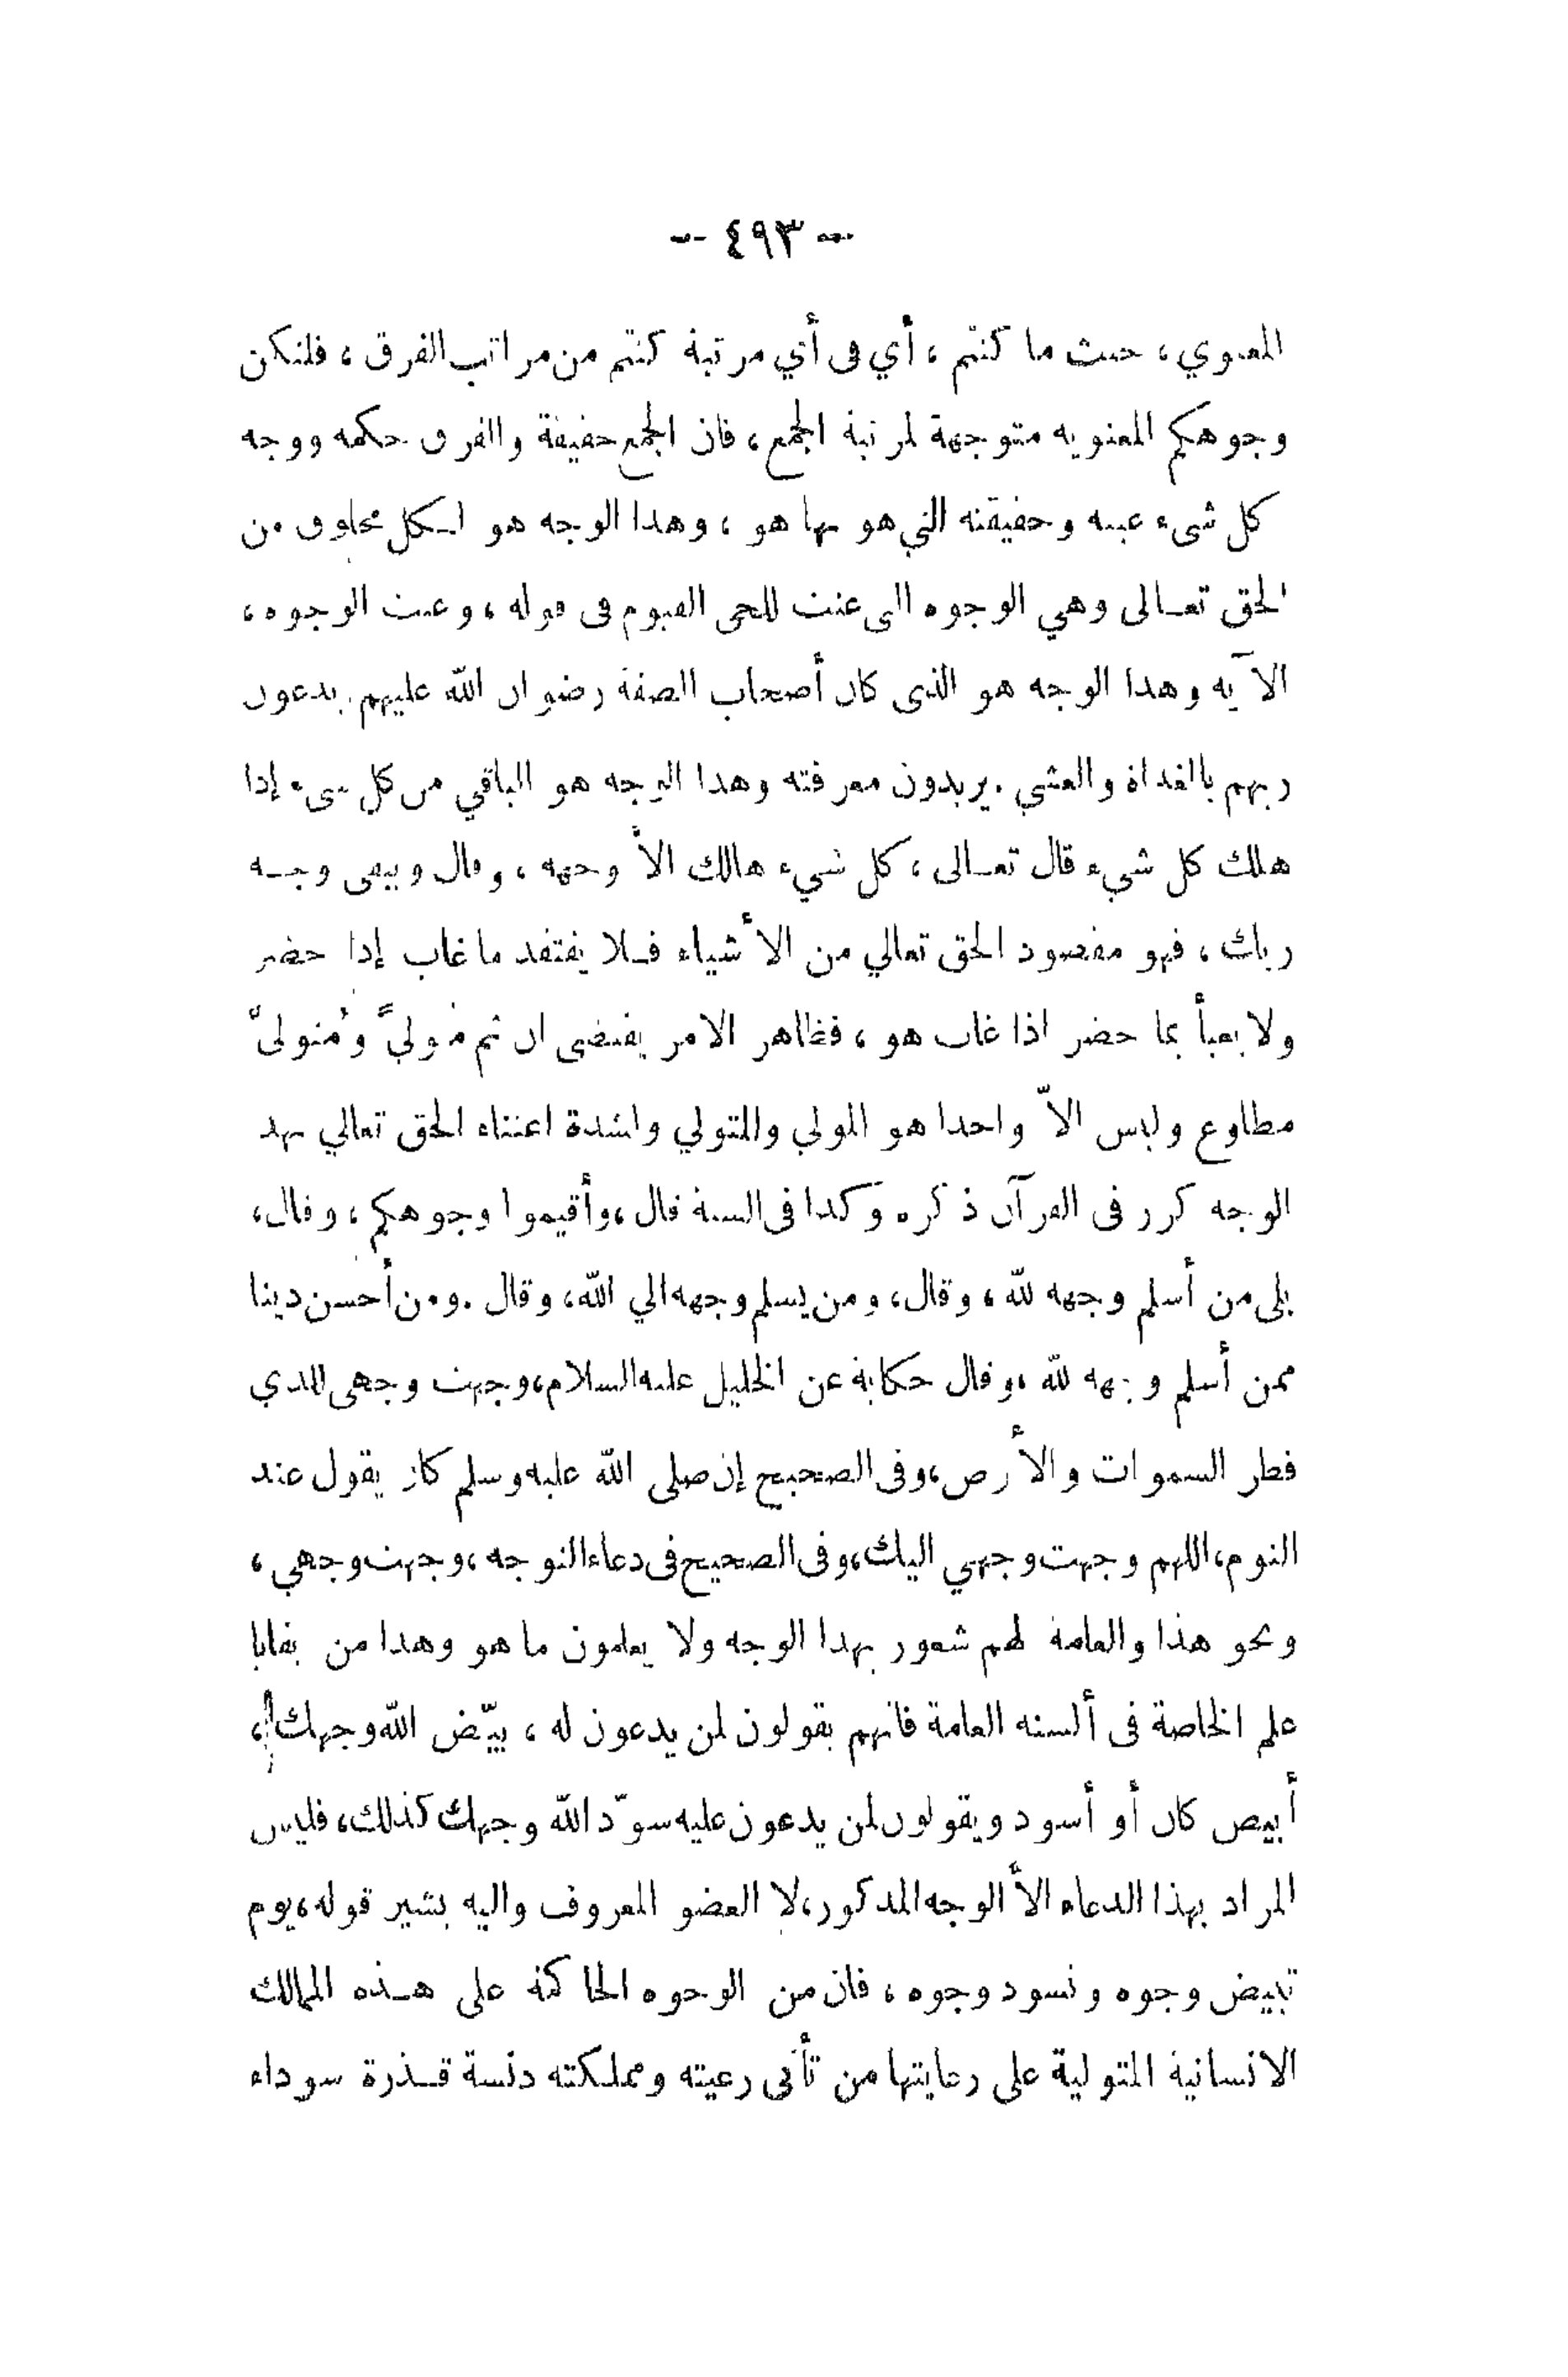 -- ٤٩٣ --
المعنوي، حيث ما كنتم، أي فى أي مرتبة كنتم من مراتب الفرق، فلتكن
وجوهكم المعنويه متوجهة لمرتبة الجمع، فان الجمع حقيقة والفرق حكمه ووجه
كل شىء عينه وحقيقته التي هو بها هو، وهذا الوجه هو لكل مخلوق من
الحق تعالى وهي الوجوه التى عنت للحى القيوم فى قوله، وعنت الوجوه،
الآيه وهذا الوجه هو الذى كان أصحاب الصفة رضوان الله عليهم يدعون
ربهم بالغداة والعشي. يريدون معرفته وهذا الوجه هو الباقي من كل شىء إذا
هلك كل شيء قال تعالى، كل شيء هالك الأ وجهه، وقال ويبقى وجه
ربك، فهو مقصود الحق تعالي من الأشياء فلا يفتقد ما غاب إذا حضر
ولا يعبأ بما حضر اذا غاب هو، فظاهر الامر يقتضى ان ثم مُوليً ومُتوليً
مطاوع وليس الاّ واحدا هو المولي والمتولي ولشدة اعتناء الحق تعالي بهذ
الوجه كرر فى القرآن ذكره وكذا فى السنة قال، وأقيموا وجوهكم، وقال،
بلى من أسلم وجهه لله، وقال، ومن يسلم وجهه الي الله، وقال. ومن أحسن دينا
ممن أسلم وجهه لله، وقال حكاية عن الخليل عليه السلام، وجهت وجهى للذي
فطر السموات والأرض، وفى الصحيح إن صلى الله عليه وسلم كان يقول عند
النوم، اللهم وجهت وجهي اليك، وفى الصحيح فى دعاء التوجه، وجهت وجهي،
ونحو هذا والعامة لهم شعور بهذا الوجه ولا يعلمون ما هو وهذا من بقايا
علم الخاصة فى ألسنه العامة فانهم يقولون لمن يدعون له، بيّض الله وجهك،
أبيض كان أو أسود ويقولون لمن يدعون عليه سوّد الله وجهك كذلك، فليس
المراد بهذا الدعاء الأ الوجه المذكور، لا العضو المعروف واليه يشير قوله، يوم
تبيض وجوه وتسود وجوه، فان من الوجوه الحاكمة على هذه الممالك
الانسانية المتولية على رعايتها من تأتى رعيته ومملكته دنسة قذرة سوداء